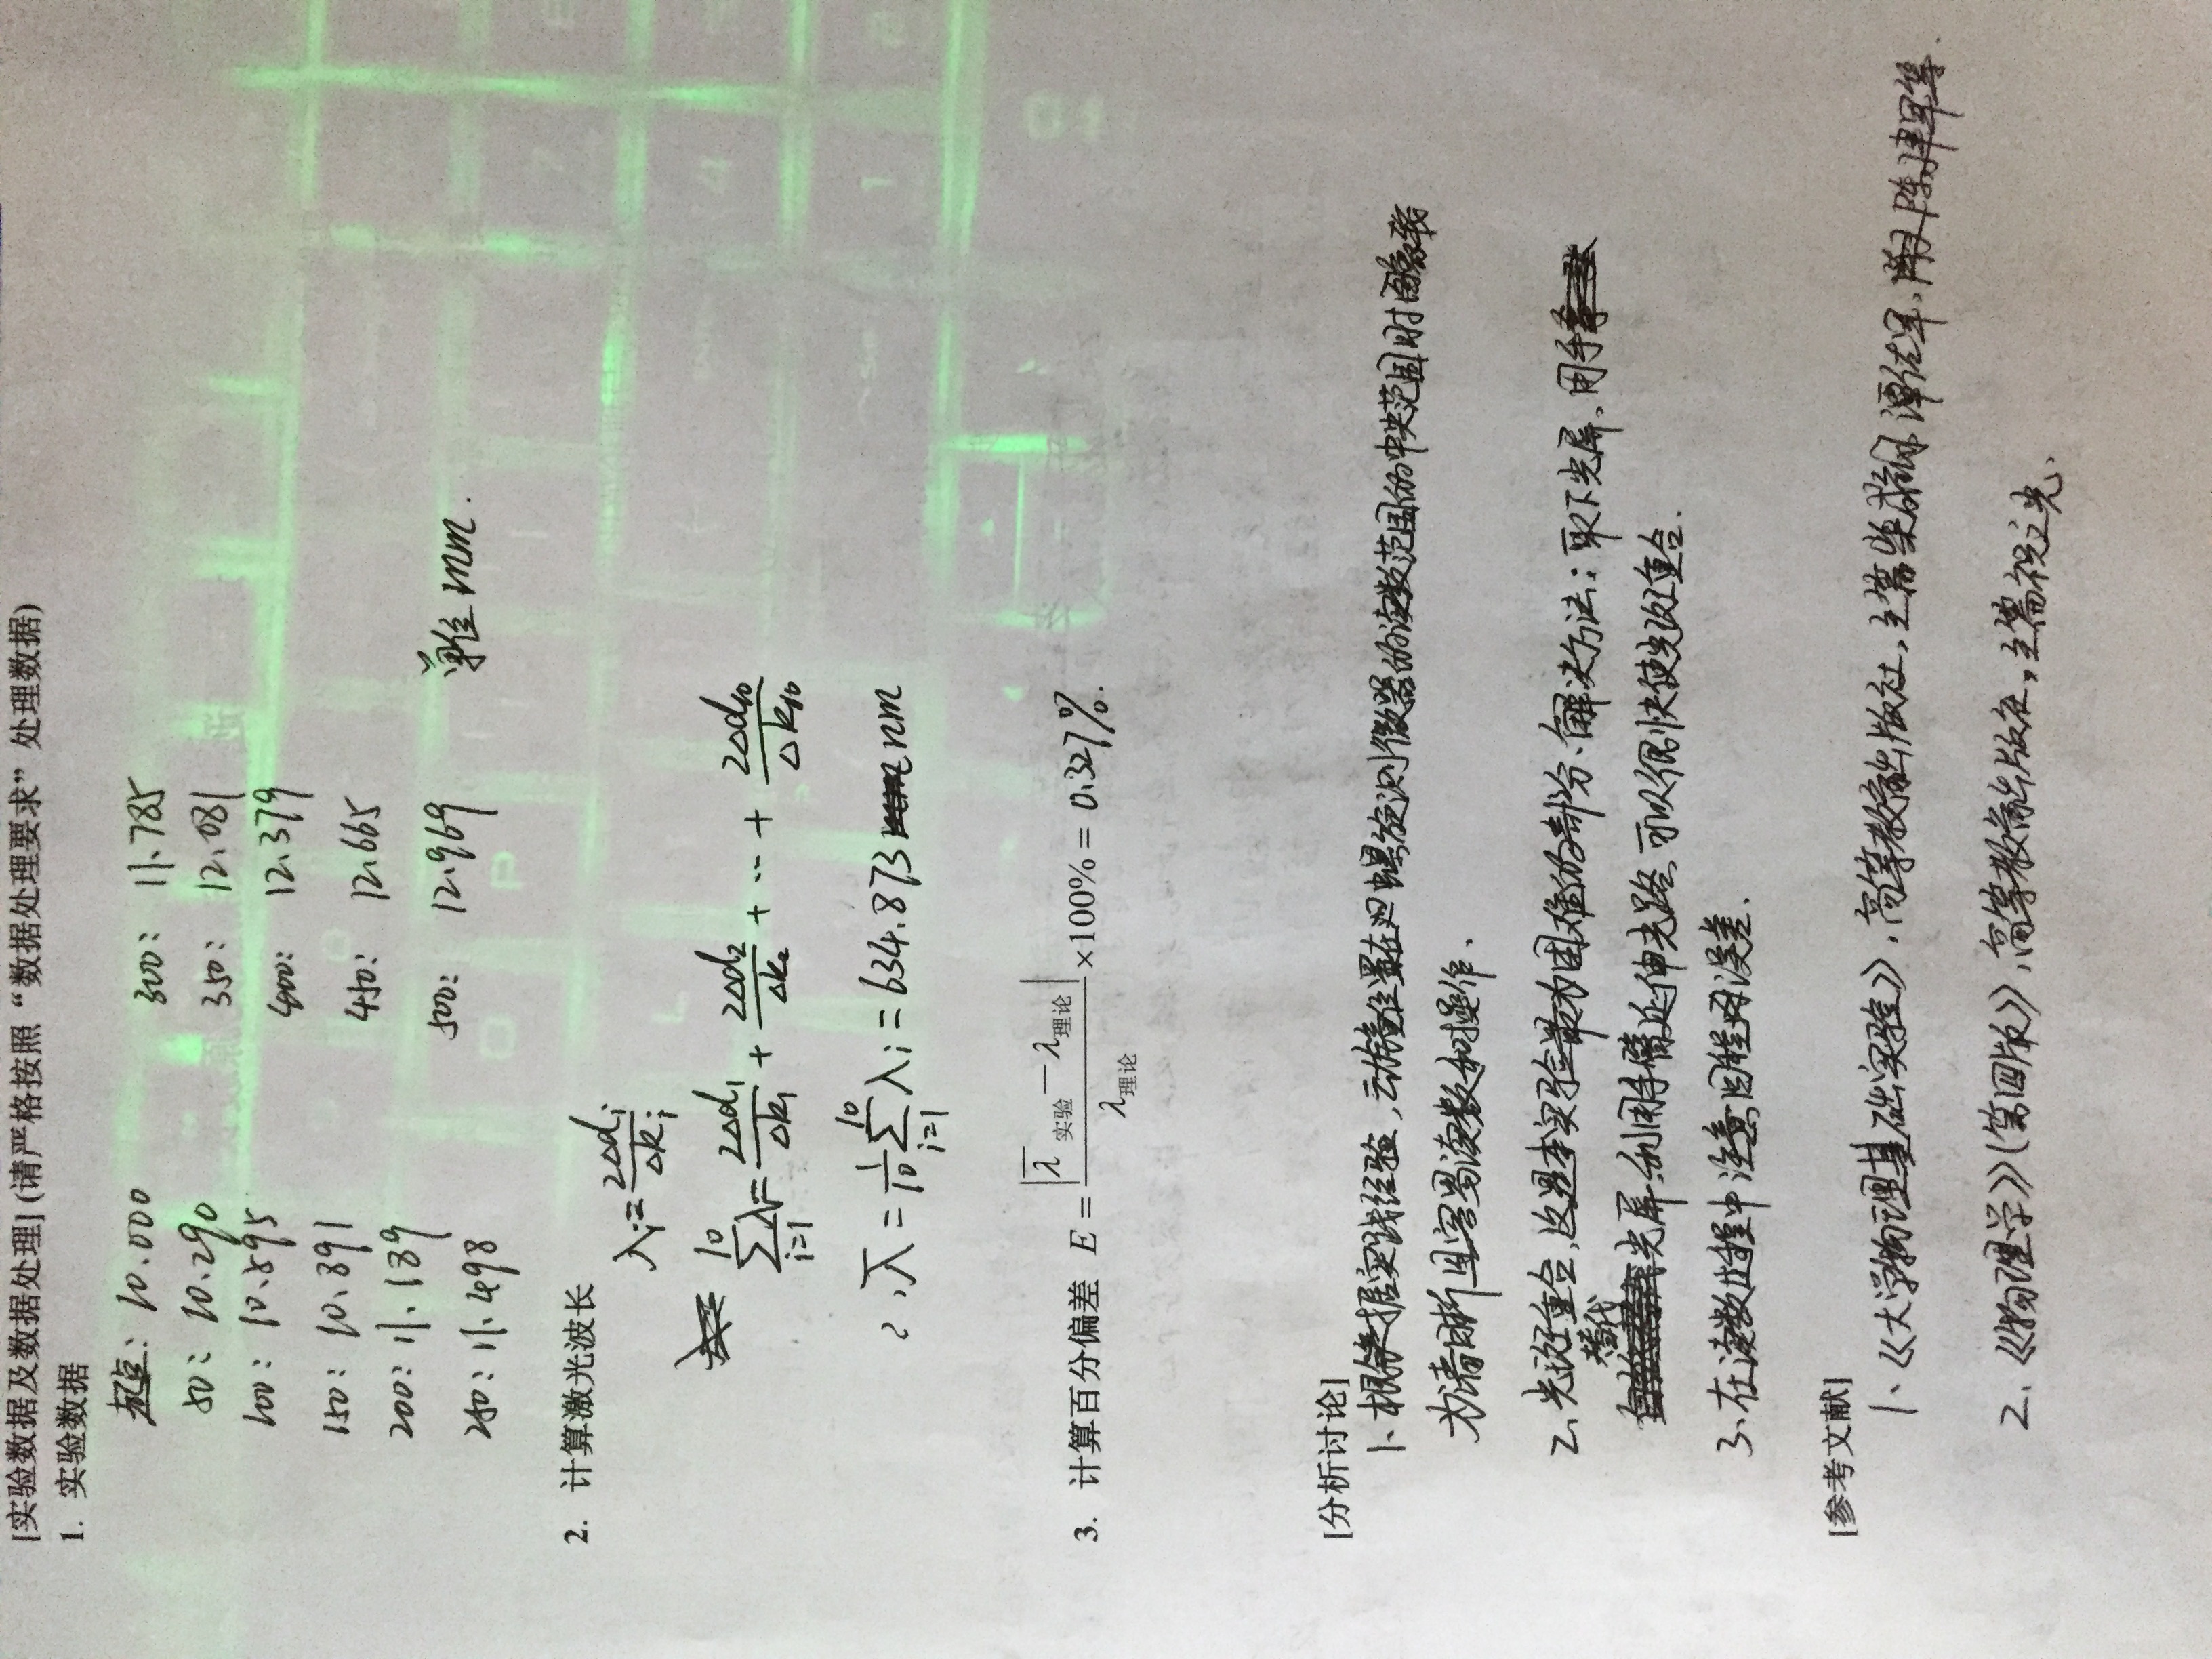 [实验数据及数据处理] (请严格按照“数据处理要求”处理数据)
1. 实验数据
起点: 10.000
50: 10.290
100: 10.595
150: 10.891
200: 11.189
250: 11.498
300: 11.785
350: 12.081
400: 12.379
450: 12.665
500: 12.969 单位 mm.
2. 计算激光波长
λi = 2Δdi/Δki
∑(i=1→10) λi = 2Δd1/Δk1 + 2Δd2/Δk2 + … + 2Δd10/Δk10
∴ λ̅ = 1/10 ∑(i=1→10) λi = 634.873 nm
3. 计算百分偏差 E = |λ̅实验 − λ理论|/λ理论 ×100% = 0.327%.
[分析讨论]
1、根据实践经验,动镜位置在螺旋测微器的读数范围的中央范围时图象较
为清晰且容易读数和操作.
2、光斑重合,这是本实验最为困难的部分.解决方法:取下光屏,用手
替代
光屏,利用手臂延伸光路,可以很快使光斑重合.
3、在读数过程中注意回程误差.
[参考文献]
1、《大学物理基础实验》,高等教育出版社,主编 谭佐军,陈建军等.
2、《物理学》(第四版),高等教育出版社,主编祝之光.